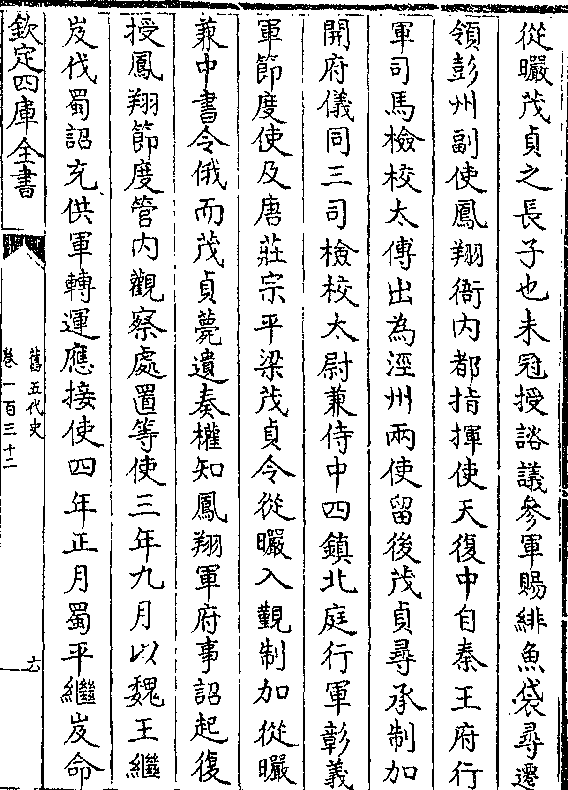 從曮茂貞之長子也未冠授諮議參軍賜緋魚袋尋遷
領彭州副使鳳翔衙内都指揮使天復中自秦王府行
軍司馬檢校太傅出為涇州兩使留後茂貞尋承制加
開府儀同三司檢校太尉兼侍中四鎮北庭行軍彰義
軍節度使及唐莊宗平梁茂貞令從曮入覲制加從曮
兼中書令俄而茂貞薨遺奏權知鳳翔軍府事詔起復
授鳳翔節度管内觀察處置等使三年九月以魏王繼
岌伐蜀詔充供軍轉運應接使四年正月蜀平繼岌命
欽定四庫全書
舊五代史
卷一百三十二
六